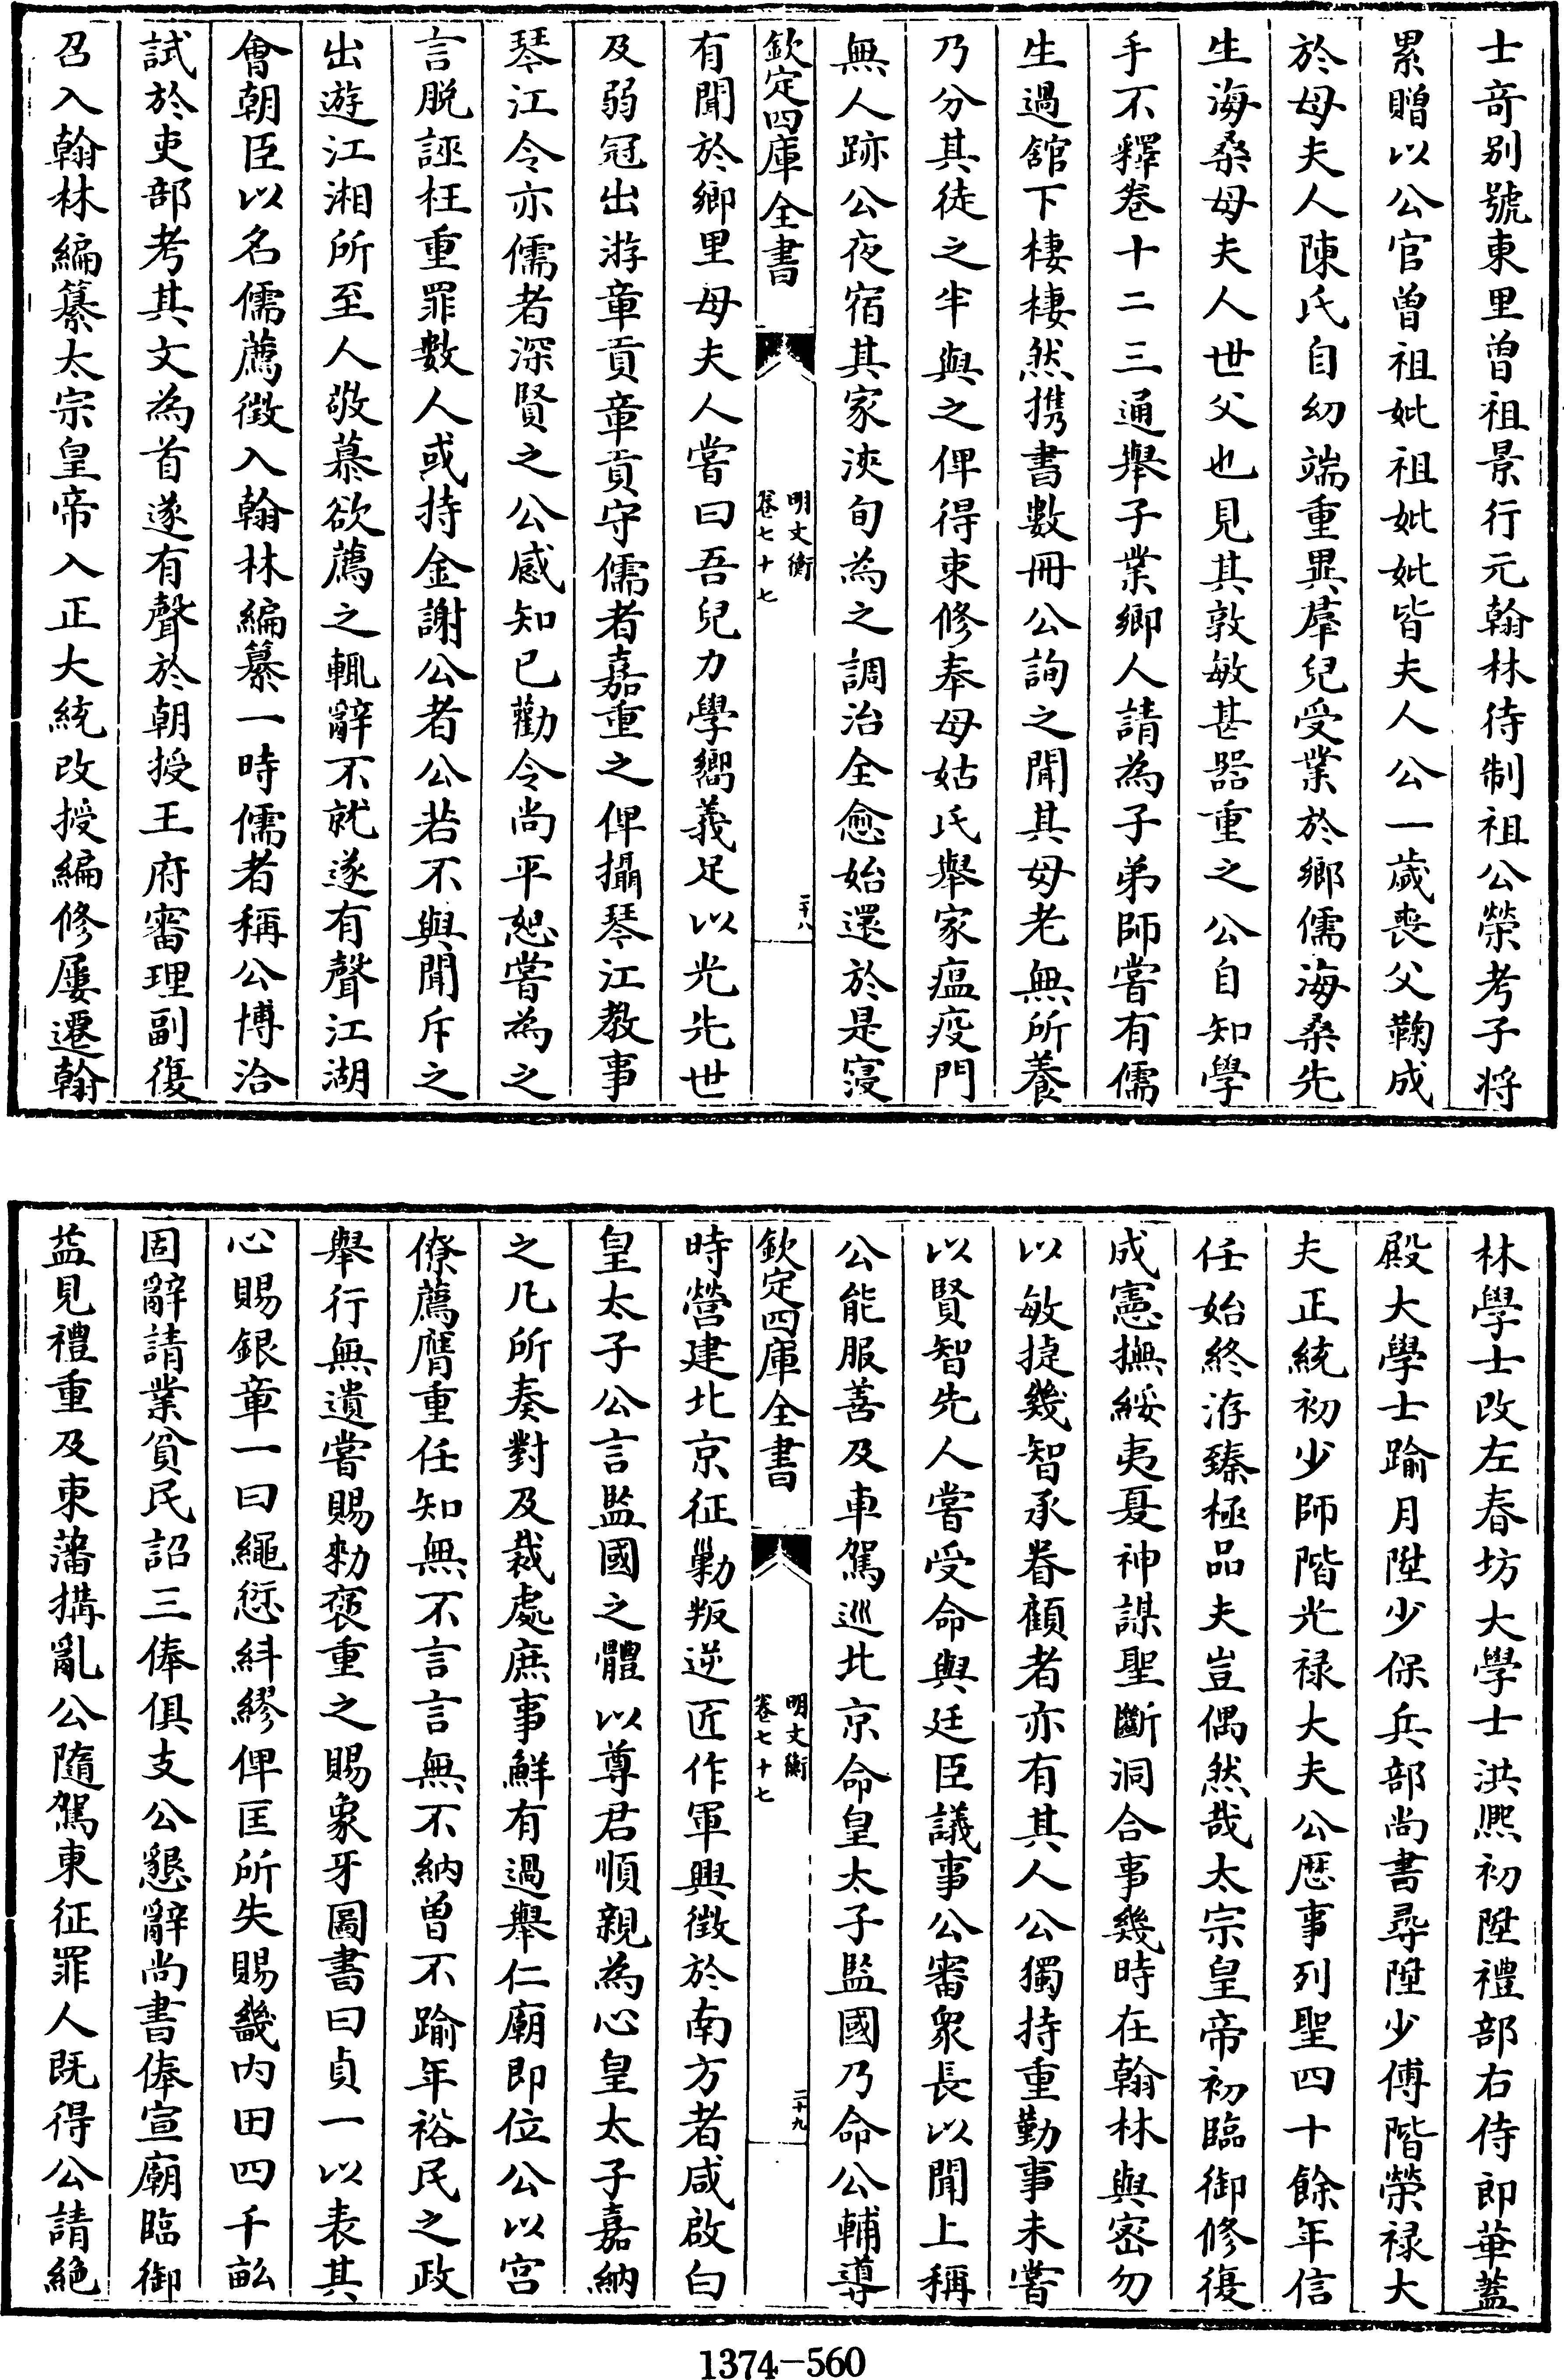 士竒别號東里曽祖景行元翰林待制祖公榮考子將
累贈以公官曽祖妣祖妣妣皆夫人公一歳喪父鞠成
於母夫人陳氏自幼端重異羣兒受業於鄉儒海桑先
生海桑母夫人世父也見其敦敏甚器重之公自知學
手不釋卷十二三通舉子業鄉人請為子弟師嘗有儒
生過舘下棲棲然携書數冊公詢之聞其母老無所養
乃分其徒之半與之俾得束修奉母姑氏舉家瘟疫門
無人跡公夜宿其家浹旬為之調治全愈始還於是寖
欽定四庫全書
明文衡
卷七十七
二十八
有聞於鄉里母夫人嘗曰吾兒力學嚮義足以光先世
及弱冠出游章貢章貢守儒者嘉重之俾攝琴江教事
琴江令亦儒者深賢之公感知已勸令尚平恕嘗為之
言脱誣枉重罪數人或持金謝公者公若不與聞斥之
出遊江湘所至人敬慕欲薦之輒辭不就遂有聲江湖
會朝臣以名儒薦徴入翰林編纂一時儒者稱公博洽
試於吏部考其文為首遂有聲於朝授王府審理副復
召入翰林編纂太宗皇帝入正大統改授編修屢遷翰
林學士改左春坊大學士洪熈初陞禮部右侍郎華葢
殿大學士踰月陞少保兵部尚書尋陞少傅階榮禄大
夫正統初少師階光禄大夫公歴事列聖四十餘年信
任始終洊臻極品夫豈偶然哉太宗皇帝初臨御修復
成憲撫綏夷夏神謀聖斷洞合事幾時在翰林與宻勿
以敏捷幾智承眷顧者亦有其人公獨持重勤事未嘗
以賢智先人嘗受命與廷臣議事公審衆長以聞上稱
公能服善及車駕巡北京命皇太子監國乃命公輔導
欽定四庫全書
明文衡
卷七十七
二十九
時營建北京征勦叛逆匠作軍興徴於南方者咸啟白
皇太子公言監國之體以尊君順親為心皇太子嘉納
之凡所奏對及裁處庶事鮮有過舉仁廟即位公以宮
僚薦膺重任知無不言言無不納曽不踰年裕民之政
舉行無遺嘗賜勅褒重之賜象牙圖書曰貞一以表其
心賜銀章一曰繩愆糾繆俾匡所失賜畿内田四千畝
固辭請業貧民詔三俸俱支公懇辭尚書俸宣廟臨御
葢見禮重及東藩搆亂公隨駕東征罪人既得公請絶
1374-560